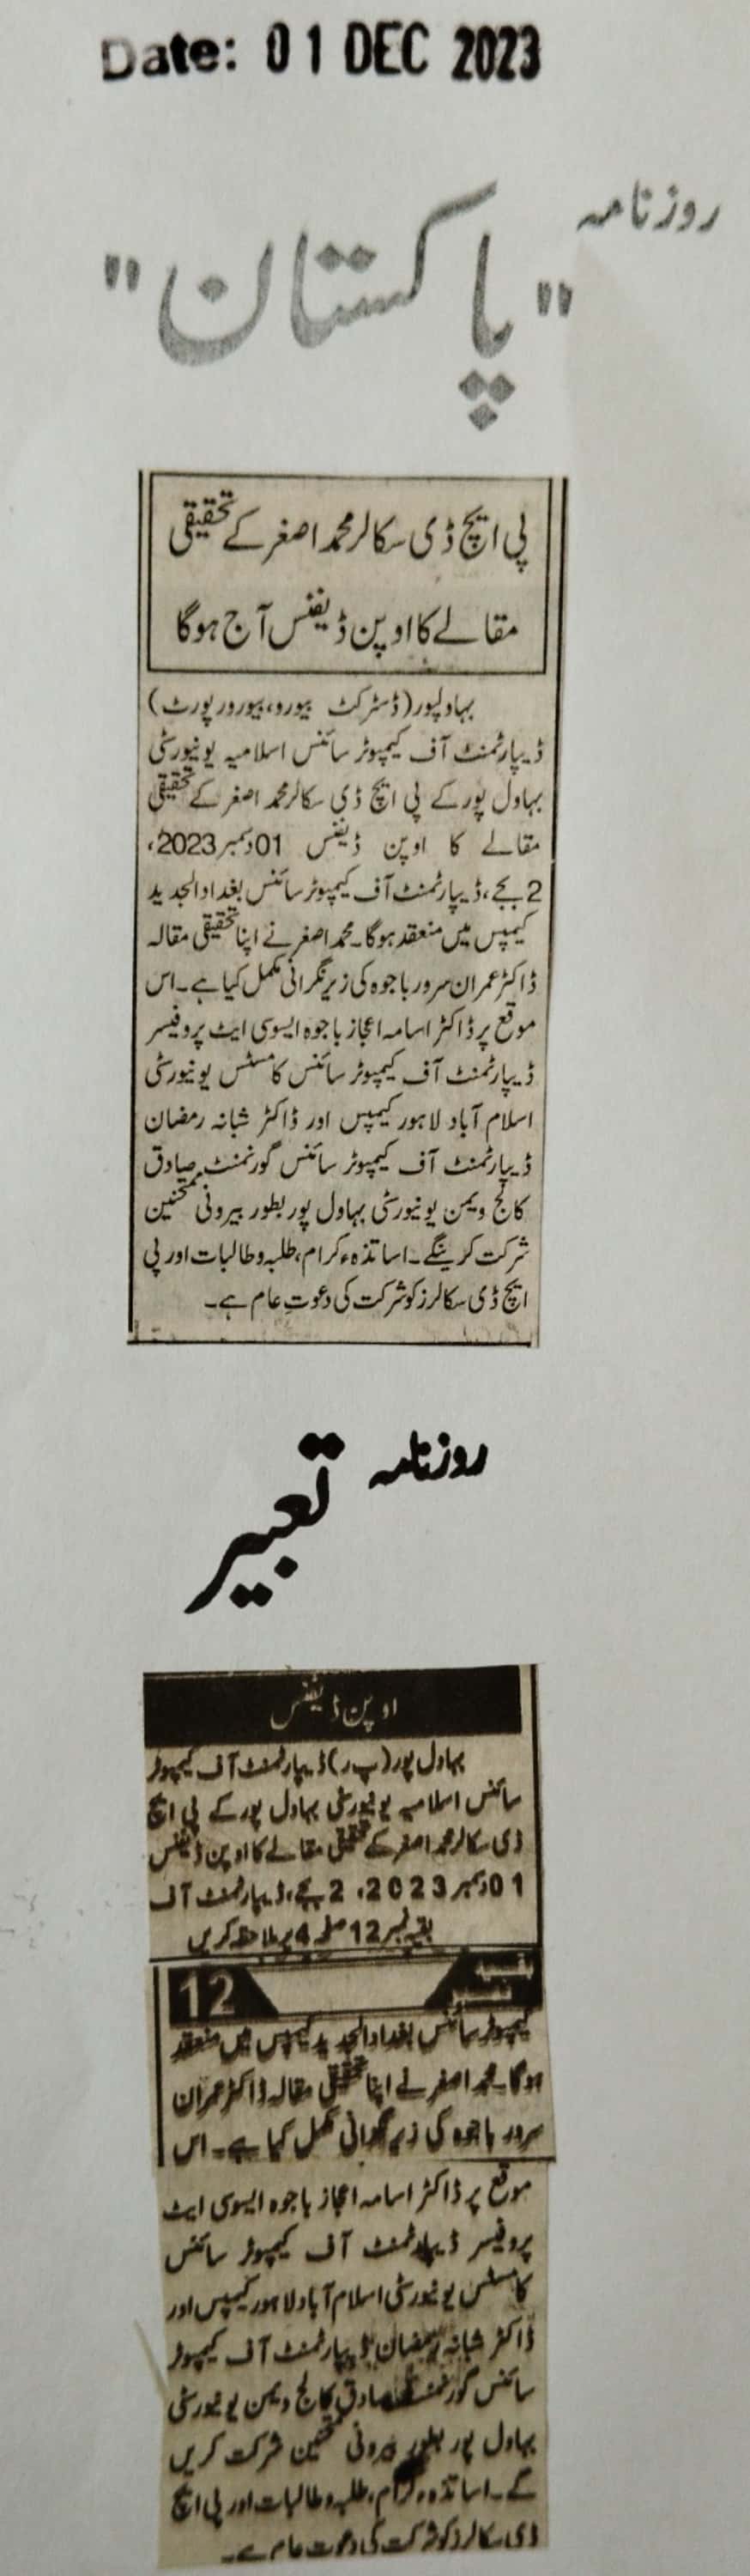 Date: 01 DEC 2023
روزنامہ
"پاکستان"
پی ایچ ڈی سکالر محمد اصغر کے تحقیقی
مقالے کا اوپن ڈیفنس آج ہوگا
بہاولپور (ڈسٹرکٹ بیورو، بیورو رپورٹ)
ڈیپارٹمنٹ آف کمپیوٹر سائنس اسلامیہ یونیورسٹی
بہاول پور کے پی ایچ ڈی سکالر محمد اصغر کے تحقیقی
مقالے کا اوپن ڈیفنس 01 دسمبر 2023،
2 بجے، ڈیپارٹمنٹ آف کمپیوٹر سائنس بغداد الجدید
کیمپس میں منعقد ہوگا۔ محمد اصغر نے اپنا تحقیقی مقالہ
ڈاکٹر عمران سرور باجوہ کی زیر نگرانی مکمل کیا ہے۔ اس
موقع پر ڈاکٹر اسامہ اعجاز باجوہ ایسوسی ایٹ پروفیسر
ڈیپارٹمنٹ آف کمپیوٹر سائنس کامسٹس یونیورسٹی
اسلام آباد لاہور کیمپس اور ڈاکٹر شبانہ رمضان
ڈیپارٹمنٹ آف کمپیوٹر سائنس گورنمنٹ صادق
کالج ویمن یونیورسٹی بہاول پور بطور بیرونی ممتحنین
شرکت کرینگے۔ اساتذہ کرام، طلبہ و طالبات اور پی
ایچ ڈی سکالرز کو شرکت کی دعوتِ عام ہے۔
روزنامہ
تعبیر
اوپن ڈیفنس
بہاول پور (پ ر) ڈیپارٹمنٹ آف کمپیوٹر
سائنس اسلامیہ یونیورسٹی بہاول پور کے پی ایچ
ڈی سکالر محمد اصغر کے تحقیقی مقالے کا اوپن ڈیفنس
01 دسمبر 2023، 2 بجے، ڈیپارٹمنٹ آف
بقیہ نمبر 12 صفحہ 4 پر ملاحظہ کریں
بقیہ نمبر 12
کمپیوٹر سائنس بغداد الجدید کیمپس میں منعقد
ہوگا۔ محمد اصغر نے اپنا تحقیقی مقالہ ڈاکٹر عمران
سرور باجوہ کی زیر نگرانی مکمل کیا ہے۔ اس
موقع پر ڈاکٹر اسامہ اعجاز باجوہ ایسوسی ایٹ
پروفیسر ڈیپارٹمنٹ آف کمپیوٹر سائنس
کامسٹس یونیورسٹی اسلام آباد لاہور کیمپس اور
ڈاکٹر شبانہ رمضان ڈیپارٹمنٹ آف کمپیوٹر
سائنس گورنمنٹ صادق کالج ویمن یونیورسٹی
بہاول پور بطور بیرونی ممتحنین شرکت کریں
گے۔ اساتذہ کرام، طلبہ و طالبات اور پی ایچ
ڈی سکالرز کو شرکت کی دعوت عام ہے۔